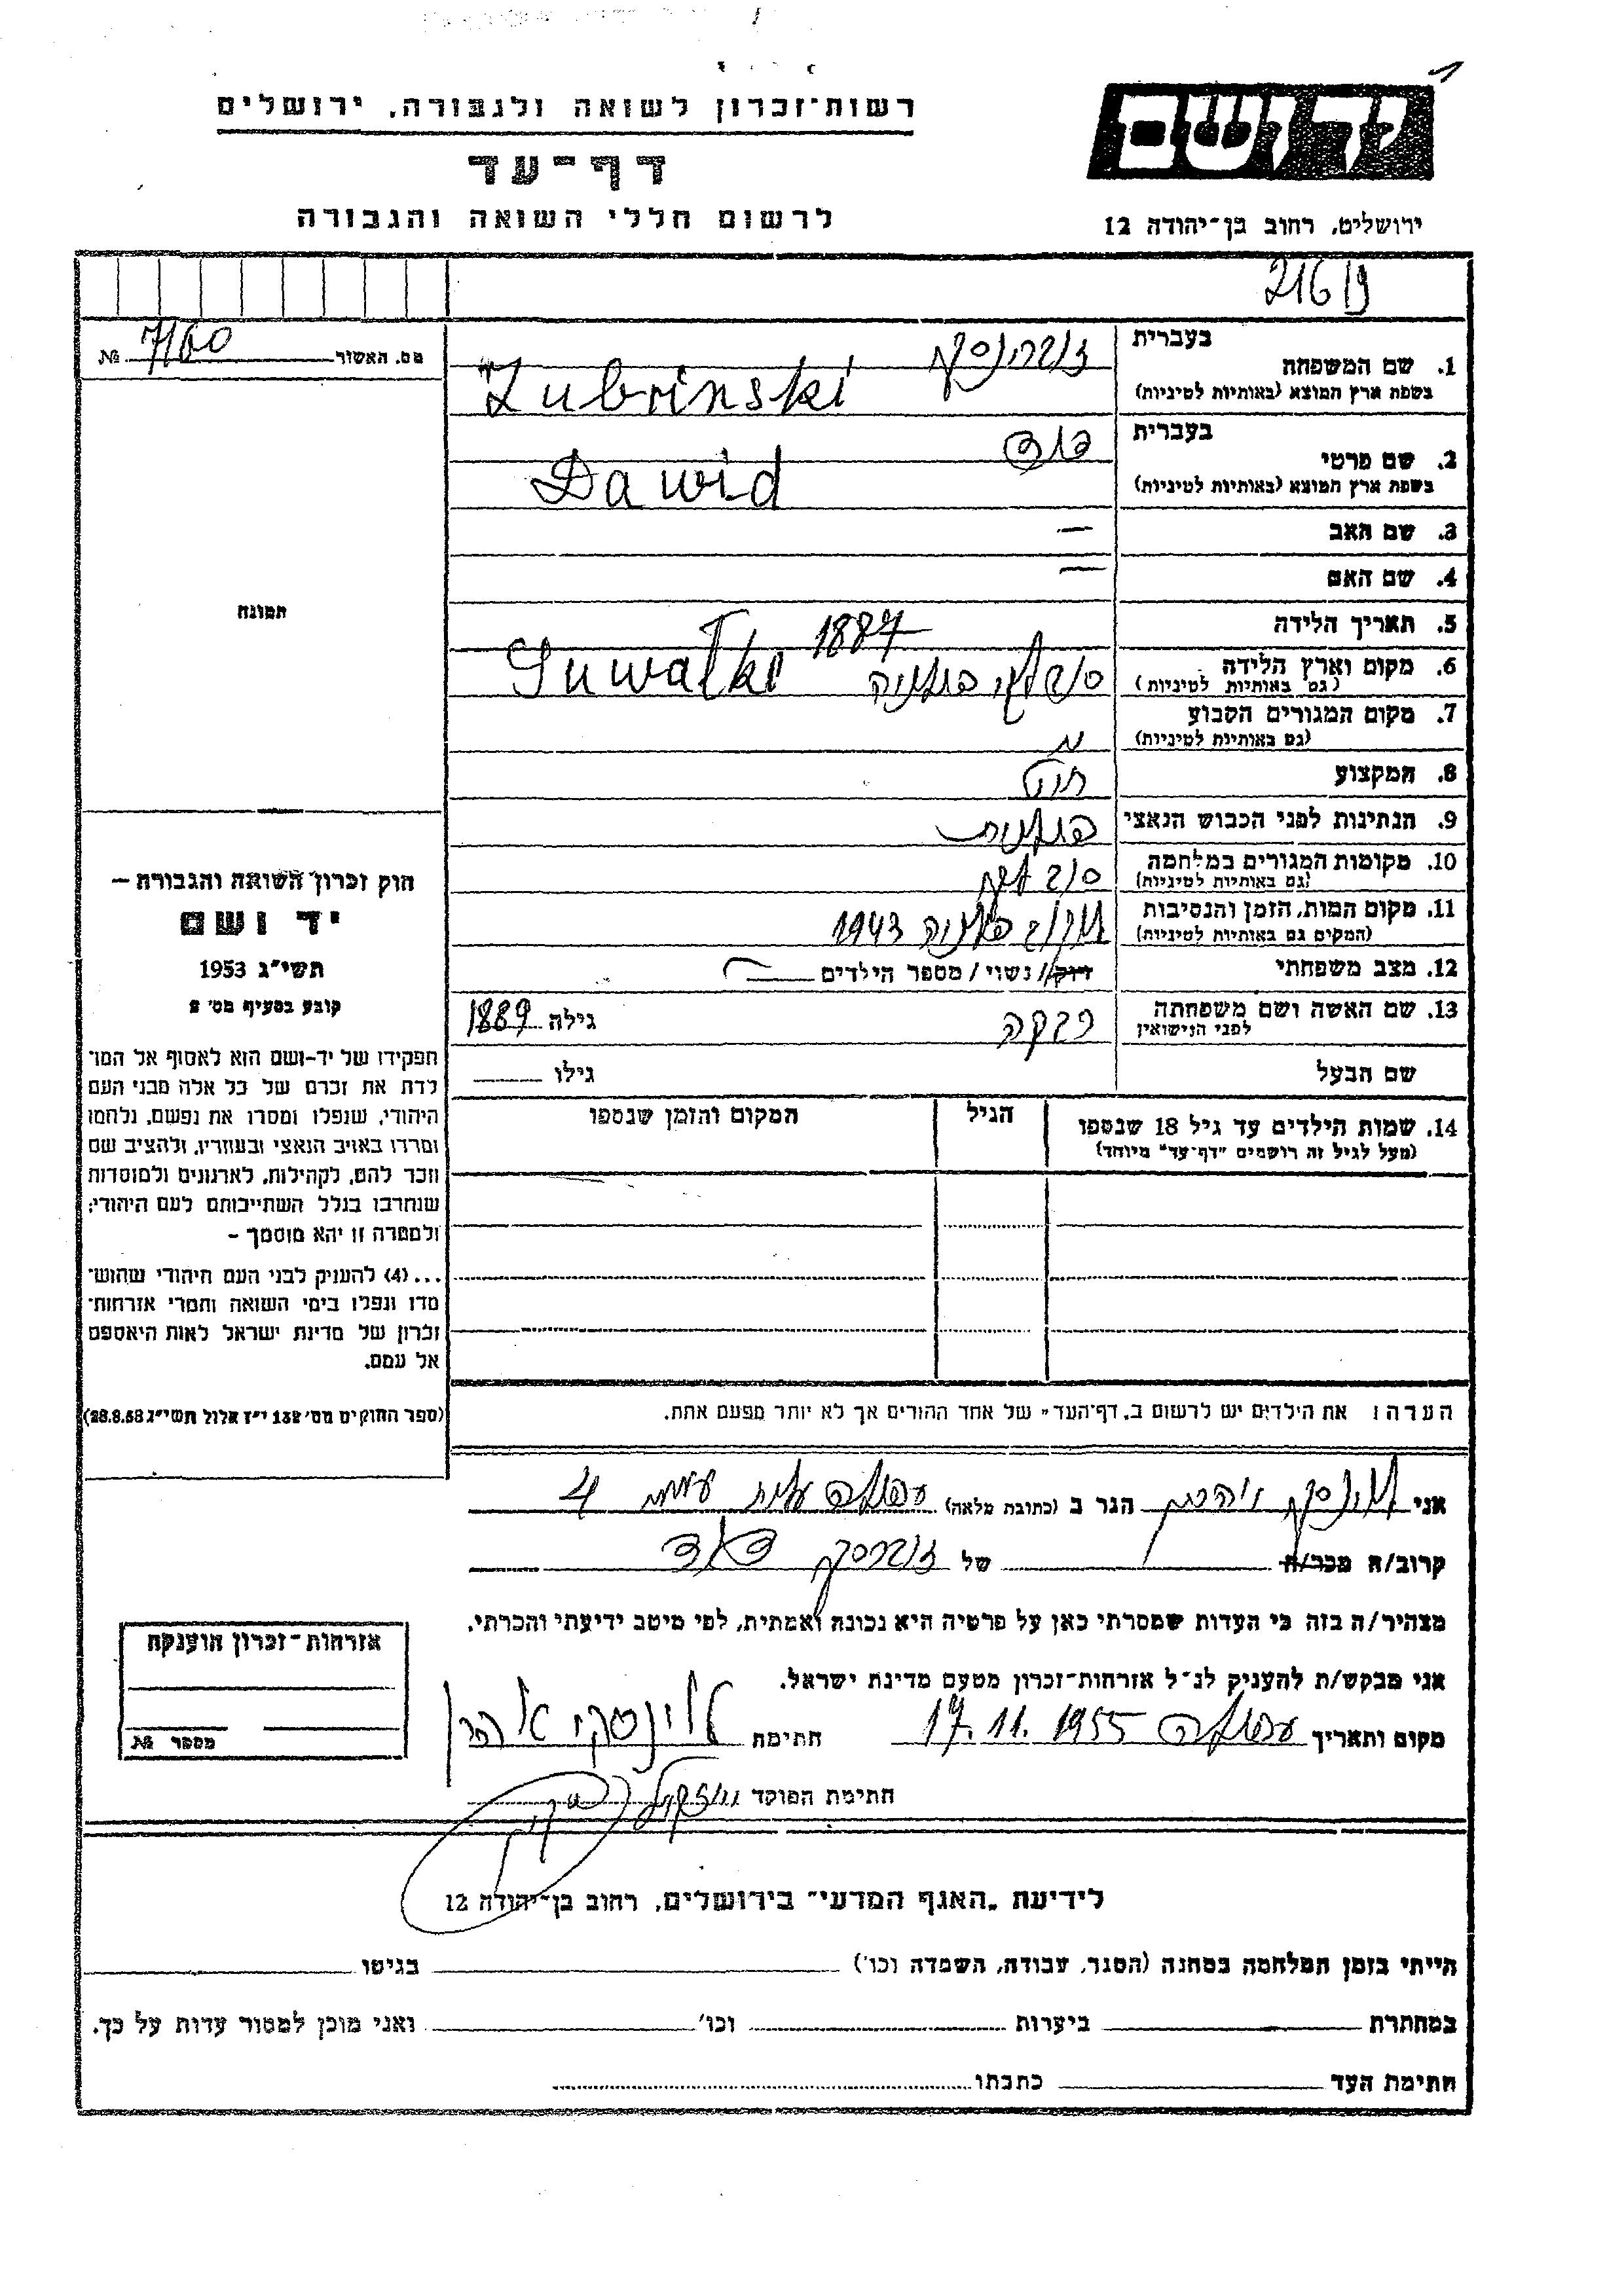 רשות־זכרון לשואה ולגבורה, ירושלים
דף־עד
לרשום חללי השואה והגבורה
יד ושם
ירושלים, רחוב בן־יהודה 12
216 /
מס. האשור 7/60 №
תמונה
1. שם המשפחה
בעברית זוברינסקי
בשפת ארץ המוצא (באותיות לטיניות) Zubrinski
2. שם פרטי
בעברית דוד
בשפת ארץ המוצא (באותיות לטיניות) Dawid
3. שם האב —
4. שם האם —
5. תאריך הלידה 1887
6. מקום וארץ הלידה סובלקי פולניה Suwałki
(גם באותיות לטיניות)
7. מקום המגורים הקבוע
(גם באותיות לטיניות)
8. המקצוע חייט
9. הנתינות לפני הכבוש הנאצי פולנית
10. מקומות המגורים במלחמה
(גם באותיות לטיניות)
11. מקום המות, הזמן והנסיבות פולניה 1943
(המקום גם באותיות לטיניות)
12. מצב משפחתי רווק/ נשוי / מספר הילדים
13. שם האשה ושם משפחתה רבקה גילה 1889
לפני הנישואין
שם הבעל גילו
14. שמות הילדים עד גיל 18 שנספו הגיל המקום והזמן שנספו
(מעל לגיל זה רושמים "דף־עד" מיוחד)
הערה: את הילדים יש לרשום ב„דף־העד" של אחד ההורים אך לא יותר מפעם אחת.
חוק זכרון השואה והגבורה —
יד ושם
תשי״ג 1953
קובע בסעיף מס׳ 2
תפקידו של יד־ושם הוא לאסוף אל המו־
לדת את זכרם של כל אלה מבני העם
היהודי, שנפלו ומסרו את נפשם, נלחמו
ומרדו באויב הנאצי ובעוזריו, ולהציב שם
וזכר להם, לקהילות, לארגונים ולמוסדות
שנחרבו בגלל השתייכותם לעם היהודי;
ולמטרה זו יהא מוסמך –
...(4) להעניק לבני העם היהודי שהוש־
מדו ונפלו בימי השואה והמרי אזרחות־
זכרון של מדינת ישראל לאות היאספם
אל עמם.
(ספר החוקים מס׳ 132 י״ז אלול תשי״ג 28.8.53)
אני הגר ב (כתובת מלאה) עפולה עלית 4
קרוב/ה מכר/ה של זוברינסקי דוד
מצהיר/ה בזה כי העדות שמסרתי כאן על פרטיה היא נכונה ואמתית, לפי מיטב ידיעתי והכרתי.
אני מבקש/ת להעניק לנ״ל אזרחות־זכרון מטעם מדינת ישראל.
מקום ותאריך עפולה 17.11.1955 חתימת
חתימת הפוקד
אזרחות־זכרון הוענקה
מספר №
לידיעת „האגף המדעי" בירושלים, רחוב בן־יהודה 12
הייתי בזמן המלחמה במחנה (הסגר, עבודה, השמדה וכו') בגיטו
במחתרת ביערות וכו' ואני מוכן למסור עדות על כך.
חתימת העד כתבתו